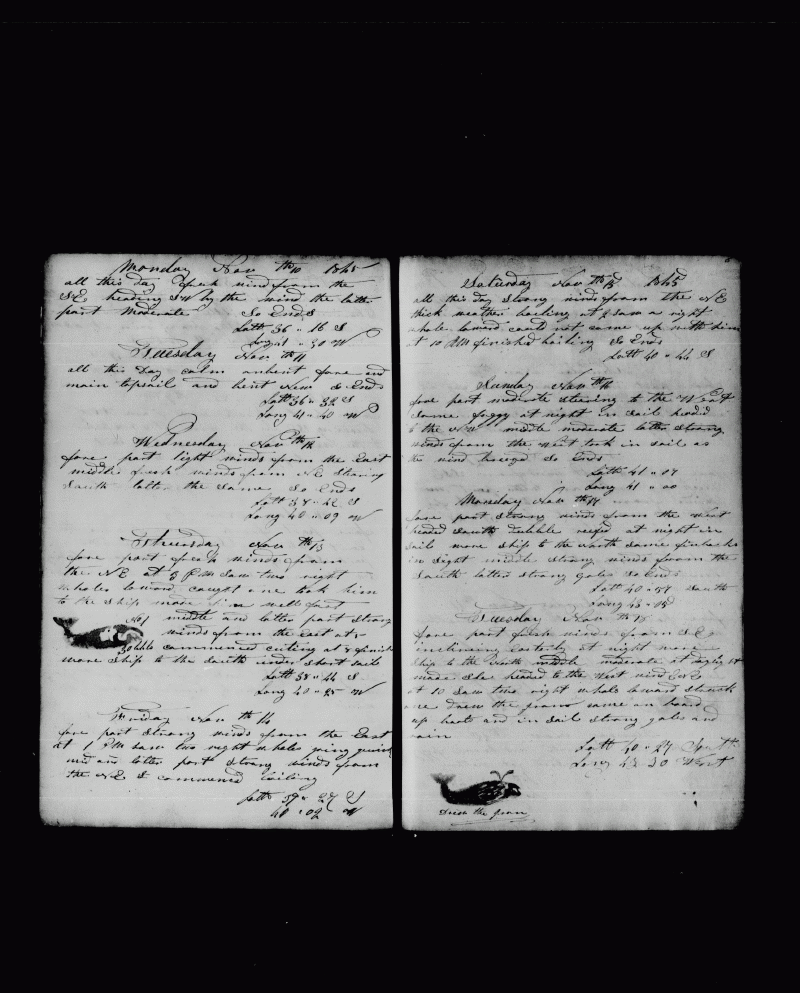 Monday Nov th10 1845
all this day fresh wind from the
SE heading SW by the wind the latter
part Moderate So Ends
Latt 36 " 16 S
Long 41 " 30 W
Tuesday Nov th11
all this day calm unbent fore and
main topsail and bent New So Ends
Latt 36 " 32 S
Long 41 " 40 W
Wednesday Nov th12
fore part light winds from the East
middle fresh winds from NE Stearing
South latter the Same So Ends
Latt 38 " 22 S
Long 40 " 09 W
Thursday Nov th13
fore part fresh winds from
the NE at 5 PM Saw two right
whales lowerd caught one took him
to the Ship made fine well fast
No1 middle and latter part Strong
winds from the East at
80 bbls commenced cuting at 8 finish
wore Ship to the South under Short Sail
Latt 38 " 44 S
Long 40 " 25 W
Friday Nov th 14
fore part Strong winds from the East
at 1 PM Saw two right whales going quick
mid and latter part Strong winds from
the NE & commenced boiling
Latt 39 " 27 S
40 " 02 W
Saturday Nov th15 1845
all this day Strong winds from the NE
thick weather boiling at Saw a right
whale lowerd could not come up with him
at 10 PM finished boiling So Ends
Latt 40 " 44 S
Sunday Nov th16
fore part moderate stearing to the
Some foggy at night in Sail headed
to the NW middle moderate latter Strong
winds from the West took in Sail as
the wind So Ends
Latt 41 " 07
Long 41 " 00
Monday Nov th
fore part Strong winds from the West
headed South Dubble reefed at night in
Sail wore Ship to the North Some finbacks
in Sight middle Strong winds from the
South latter strong gales So Ends
Latt 40 " 54 South
Long 43 " 15
Tuesday Nov th 18
fore part fresh winds from SE
inclining easterly at night wore
Ship to the North middle moderate at
made Sail headed to the West wind ENE
at 10 Saw two right whals lowerd Struck
one drew the iron came on board
up boats and in Sail strong gales and
rain
Latt 40 " 27 South
Long 42 30 West
Drew the iron